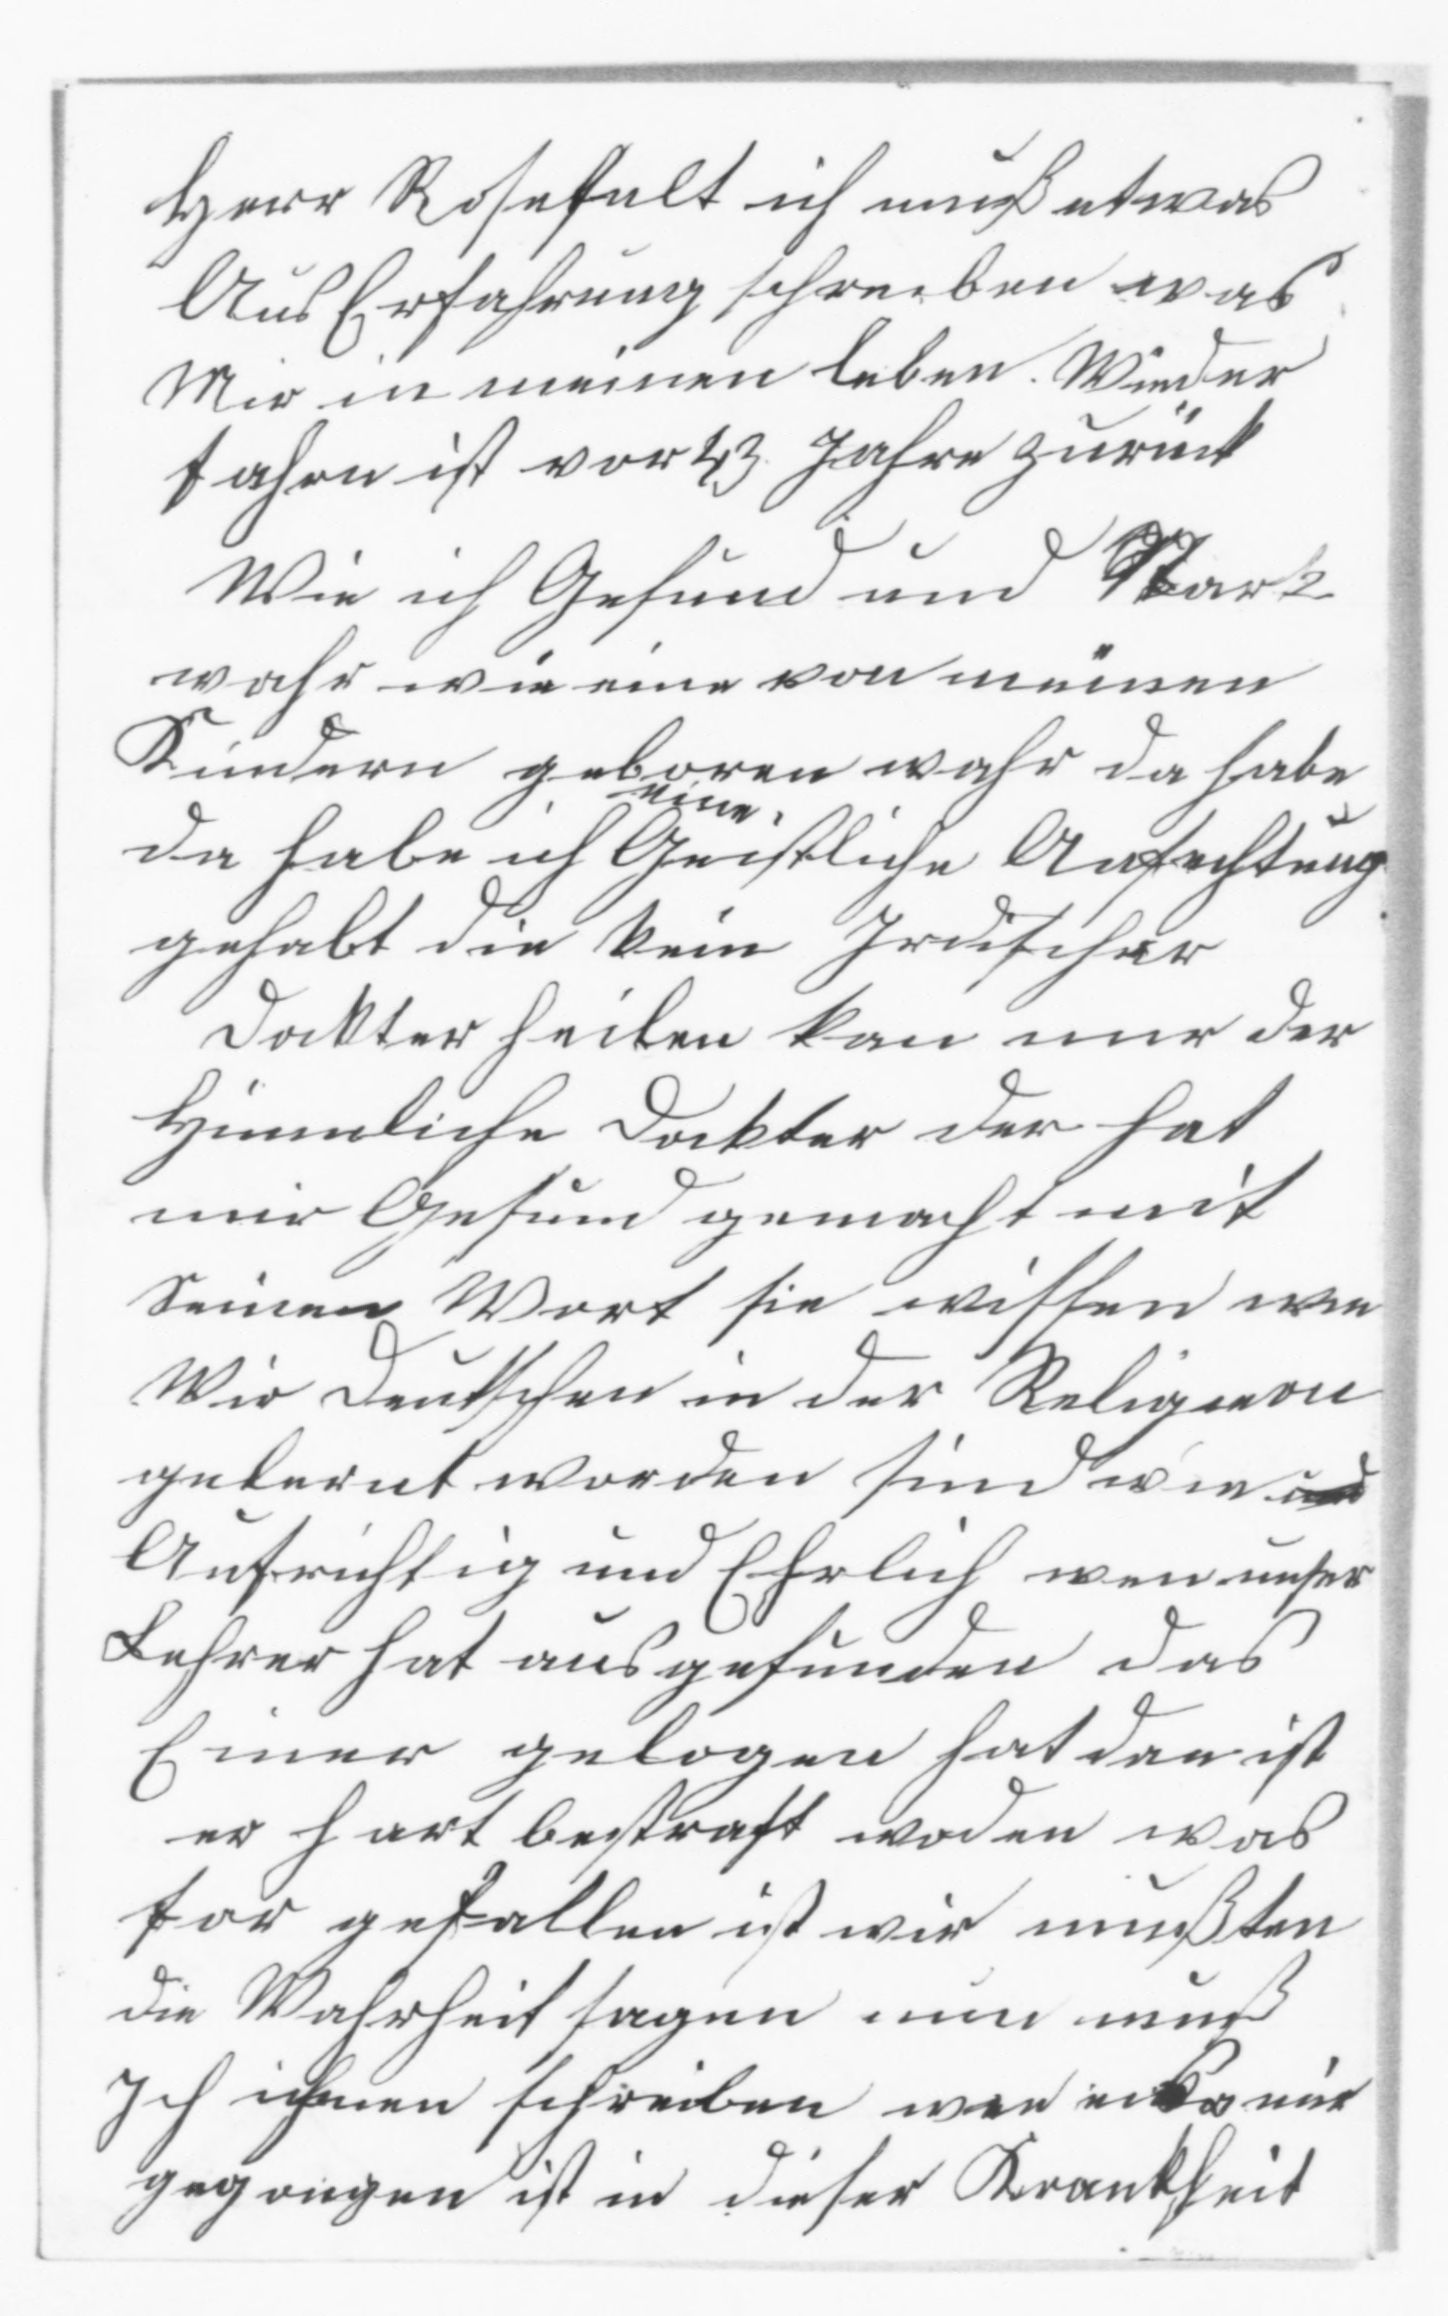 Herr Rosefelt ich muß etwas
Aus Erfahrung schreiben was
Mir in meinen leben. Wieder
fahren ist vor 43 Jahre zurück
Wie ich Gesund und Stark
wahr wie eine von meinen
Kindern geboren wahr da habe
da habe ich eine Geistliche Anfechtung
gehabt die kein Irdischer
Dockter heilen kan nur der
Himmliche Dockter der hat
mir Gesund gemacht mit
Seinen Wort sie wissen wie
Wir Deutschen in der Religion
gelernt worden sind wie
Aufrichtig und Ehrlich wen unser
Lehrer hat ausgefunden das
Einer gelogen hat dan ist
er hart bestraft woden was
for gefallen ist wir mußten
die Wahrheit sagen nun muß
Ich ihnen schreiben wie es mir
gegangen ist in dieser Krankheit